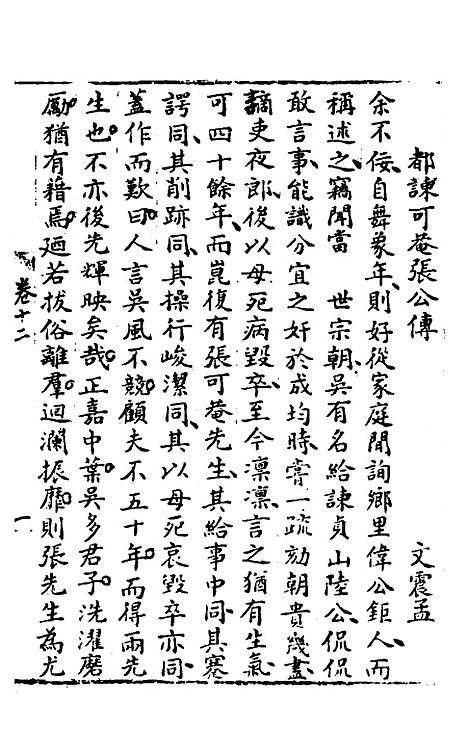 都諫可菴張公傳　文震孟
余不佞自舞象年則好從家庭間詢鄉里偉公鉅人而
稱述之竊聞當　世宗朝吳有名給諫貞山陸公侃侃
敢言事能識分宜之奸於成均時嘗一疏劾朝貴幾盡
謫吏夜郎後以母死病毀卒至今凛凛言之猶有生氣
可四十餘年而崑復有張可菴先生其給事中同其蹇
諤同其削跡同其操行峻潔同其以母死哀毀卒亦同
蓋作而歎曰人言吳風不競顧夫不五十年而得兩先
生也不亦後先輝映矣哉正嘉中葉吳多君子洗濯磨
勵猶有藉焉廼若拔俗離羣迴瀾振靡則張先生為尤
卷十二　一